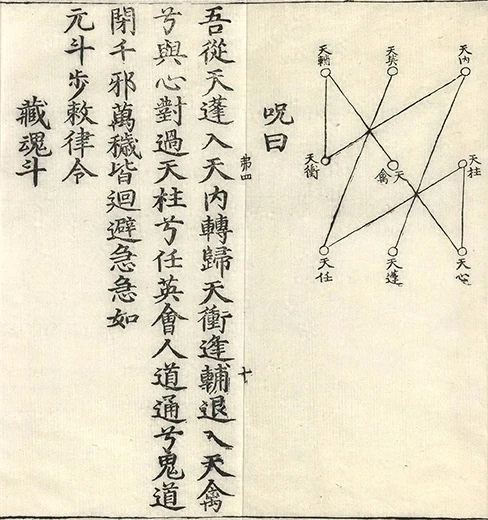 天內
天英
天輔
天柱
天禽
天衝
天心
天蓬
天任
呪曰
第四
十
吾從天蓬入天內轉歸天衝逢輔退入天禽
兮與心對過天柱兮任英會人道通兮鬼道
閉千邪萬穢皆迴避急急如
元斗步敕律令
藏魂斗